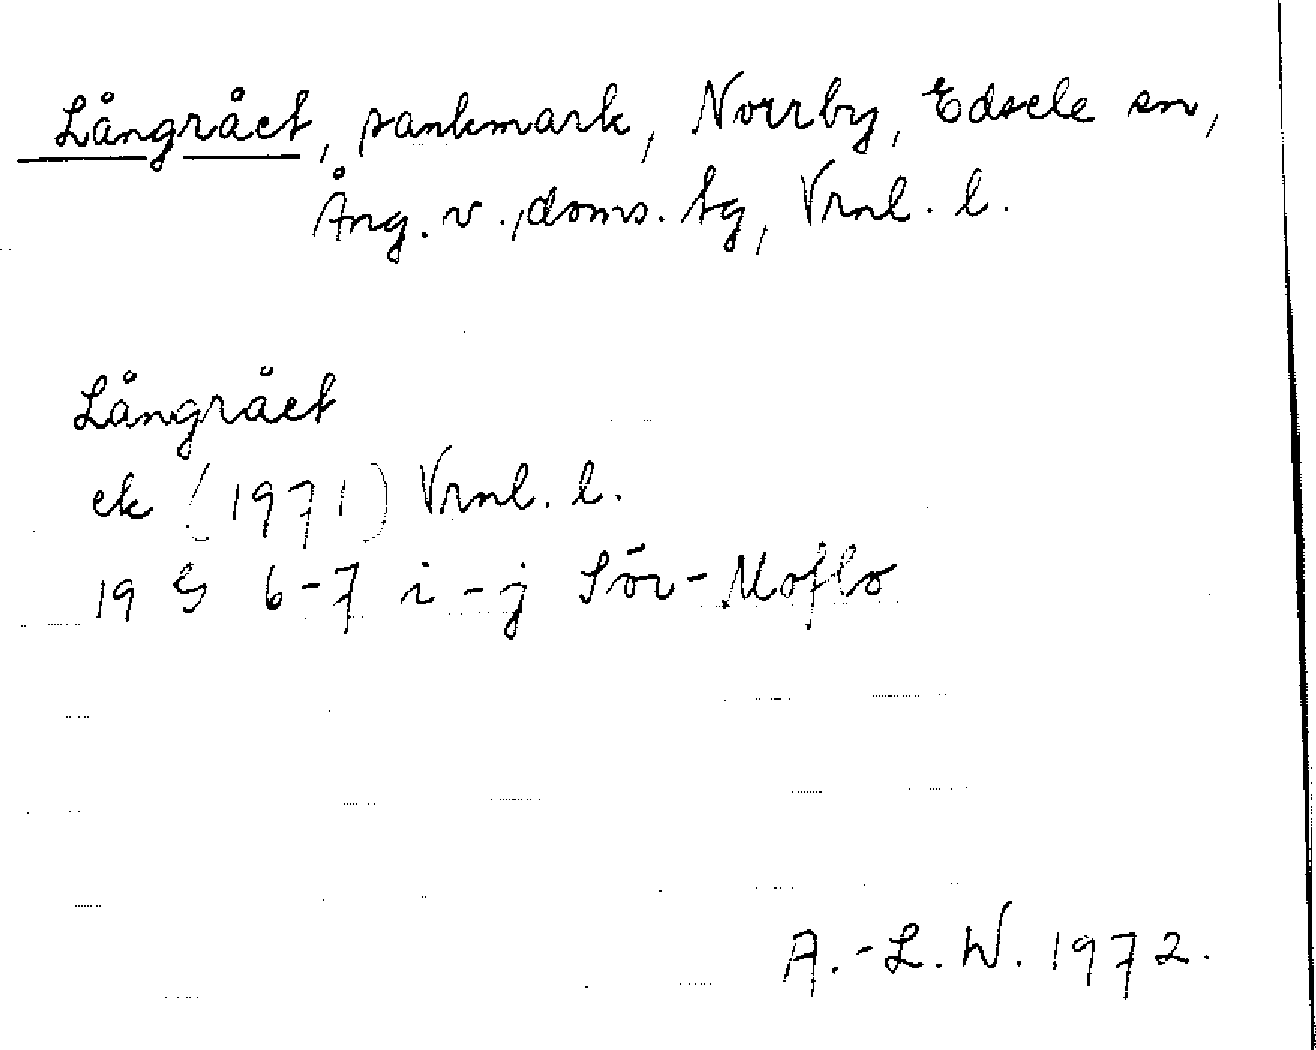 Långrået, sankmark, Norrby, Edsele sn,
Ång. v., doms. tg, Vrnl. l.
Långrået
ek (1971) Vrnl. l.
19 G 6-7 i-j Sör-Moflo
A.-L. W. 1972.